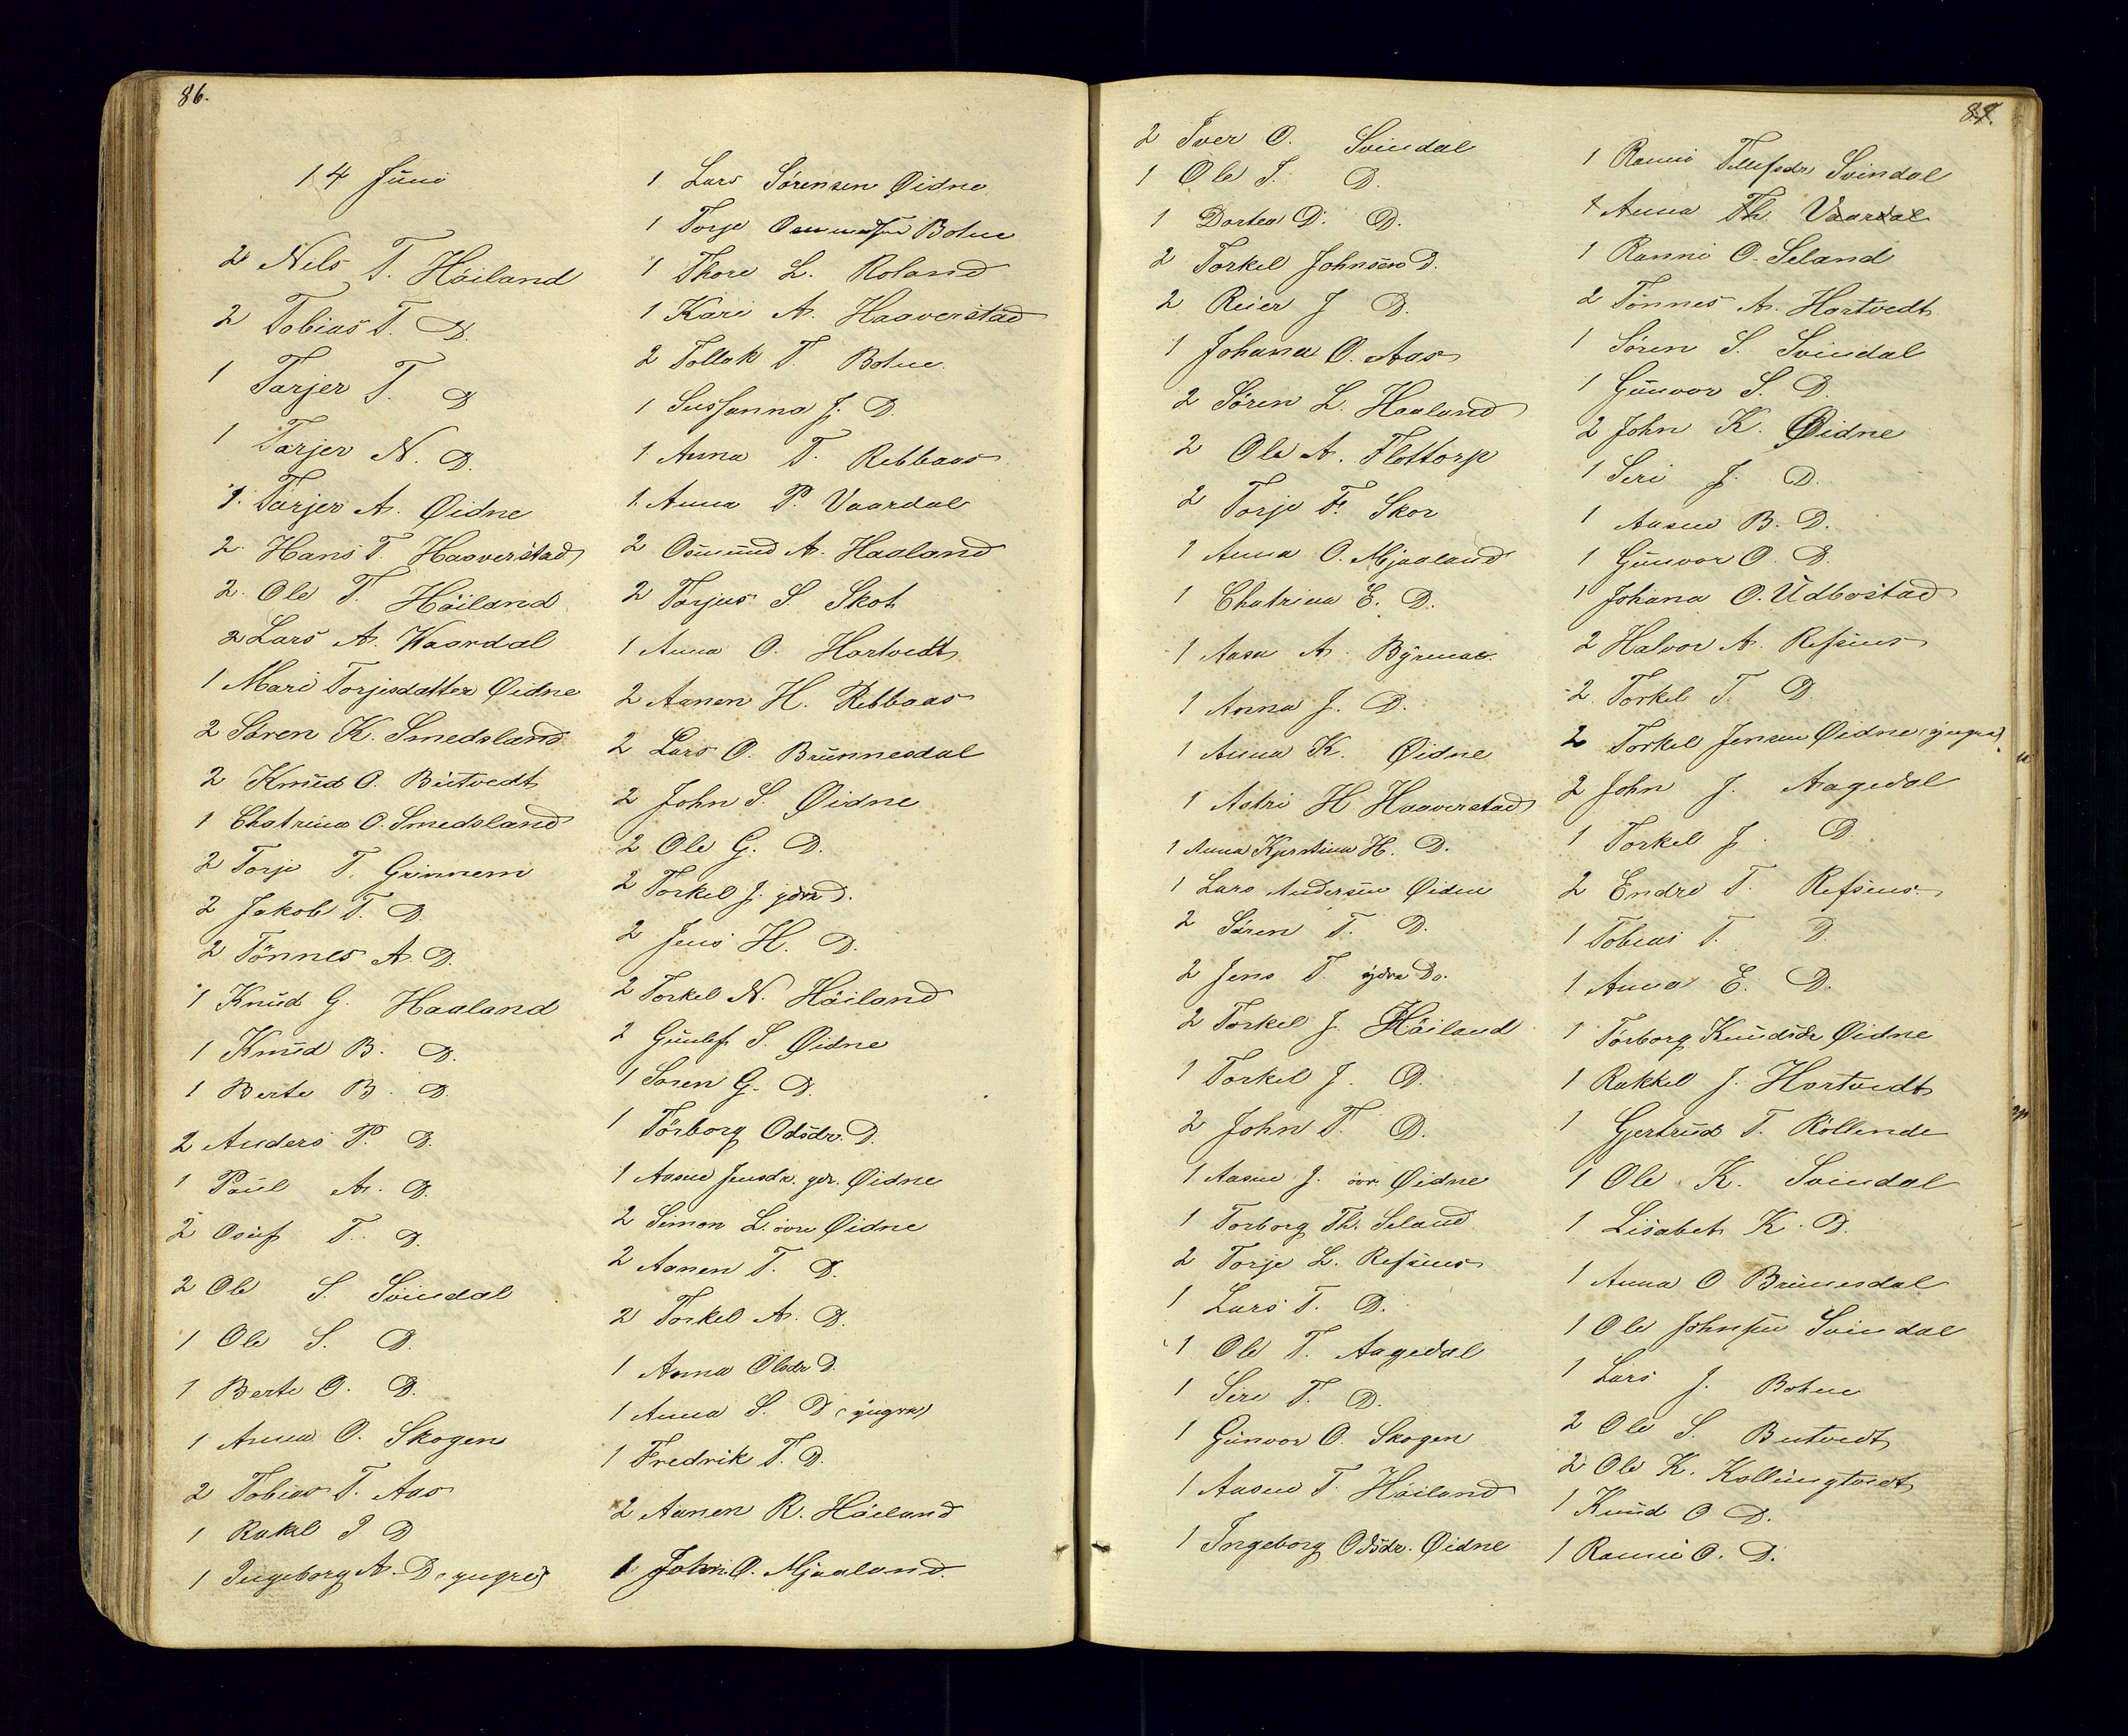 86.
14 Juni
2 Nels T. Höiland
2 Tobias T. D.
1 Tarjer T. D
1 Tarjer N. D.
1. Tarjer A. Øidne
2. Hans T. Haaverstad
2. Ole T. Höiland
2 Lars A. Waardal
1 Mari Torjisdatter Øidne
2 Sören K. Smedsland
2 Knud O. Butvedt
1 Chatrina O. Smedsland
2 Torje T. Grinnem
2 Jakob T. D.
2 Tönnes A. D.
1 Knud G. Haaland
1 Knud B. D.
1 Berte B. D.
2 Anders P. D.
1 Paul A. D.
2 Osuf T. D.
2 Ole S. Svindal
1 Ole S. D.
1 Berte O. D.
1 Anna O. Skogen
2 Tobias T. Aas
1 Rakel D
1 Ingeborg A. D. (yngre)
1 Lars Sörensen Øidne
1 Torje Botne
1 Thore L. Roland
1 Kari A. Haaverstad
2 Tollak T. Botne.
1 Susanna J. D.
1 Anna T. Rebbaas
1. Anna P. Vaardal
2 Osmund A. Haaland
2 Torjus S. Skot
1 Anna O. Hortvedt
2 Aanen H. Rebbaas
2 Lars O. Brunnesdal
2 John S. Øidne
2 Ole G. D.
2 Torkel J. ydre D.
2 Jens H. D.
2 Torkel N. Höiland
2 Gunlef S. Øidne
1 Soren G. D.
1 Törborg Odsdr. D.
1 Aasne Jensdr. ydr. Øidne
2 Simon L. övre Øidne
2 Aanen T. D.
2 Torkel A. D.
1 Anna Olsdr D.
1 Anna S. D (yngre)
1 Fredrik T. D.
2 Aanen R. Höiland
1 John O. Mjaaland.
87.
2 Iver O. Svindal
1 Ole I. D.
1 Dortea D. D.
2 Torkel Johnsen D.
2 Reier J D.
1 Johana O. Aas
2 Sören L. Haaland
2 Ole A. Flottorp
2 Torje F. Skor
1 Anna O. Mjaaland
1 Chatrina E. D.
1 Aasa A. Byremo.
1 Anna J. D.
1 Anna K. Øidne
1 Astri H Haaverstad
1 Anna Kjerstina H. D.
1 Lars Andersen Øidne
2 Sören T. D.
2 Jens T. ydre Do.
2 Torkel J. Höiland
1 Torkel J. D.
2 John T. D.
1 Aasne J. övr. Øidne
1 Torborg Th. Seland
2 Torje L. Refsnes
1 Lars T. D.
1 Ole T. Aagedal
1 Siri T. D.
1 Gunvor O. Skogen
1 Aasne T. Höiland
1 Ingeborg Odsdr. Øidne
1 Ranni Tellefsdr Svindal
1 Anna Th. Vaardal
1 Ranni O. Seland
2 Tönnes A. Hortvedt
1 Sören S. Svindal
1 Gunvor S. D.
2 John K. Øidne
1 Seri J. D.
1 Aasne B. D.
1 Gunvor O. D.
1 Johana O. Udbostad
2 Halvor A. Refsnes
2 Torkel T. D.
2 Torkel Jensen Øidne (yngre)
2 John J. Aagedal
1 Torkel J. D.
2 Endre T. Refsnes
1 Tobias T. D.
1 Anna E. D.
1 Törborg Knudsdr Øidne
1 Rakkel J. Hortvedt
1 Gjertrud T. Röllende
1 Ole K. Svindal
1 Lisabet K. D.
1 Anna O Brunesdal
1 Ole Johnsen Svindal
1 Lars J. Botne
2 Ole S. Butvedt
2 Ole K. Kollungtvedt
1 Knud O D.
1 Ranni O. D.